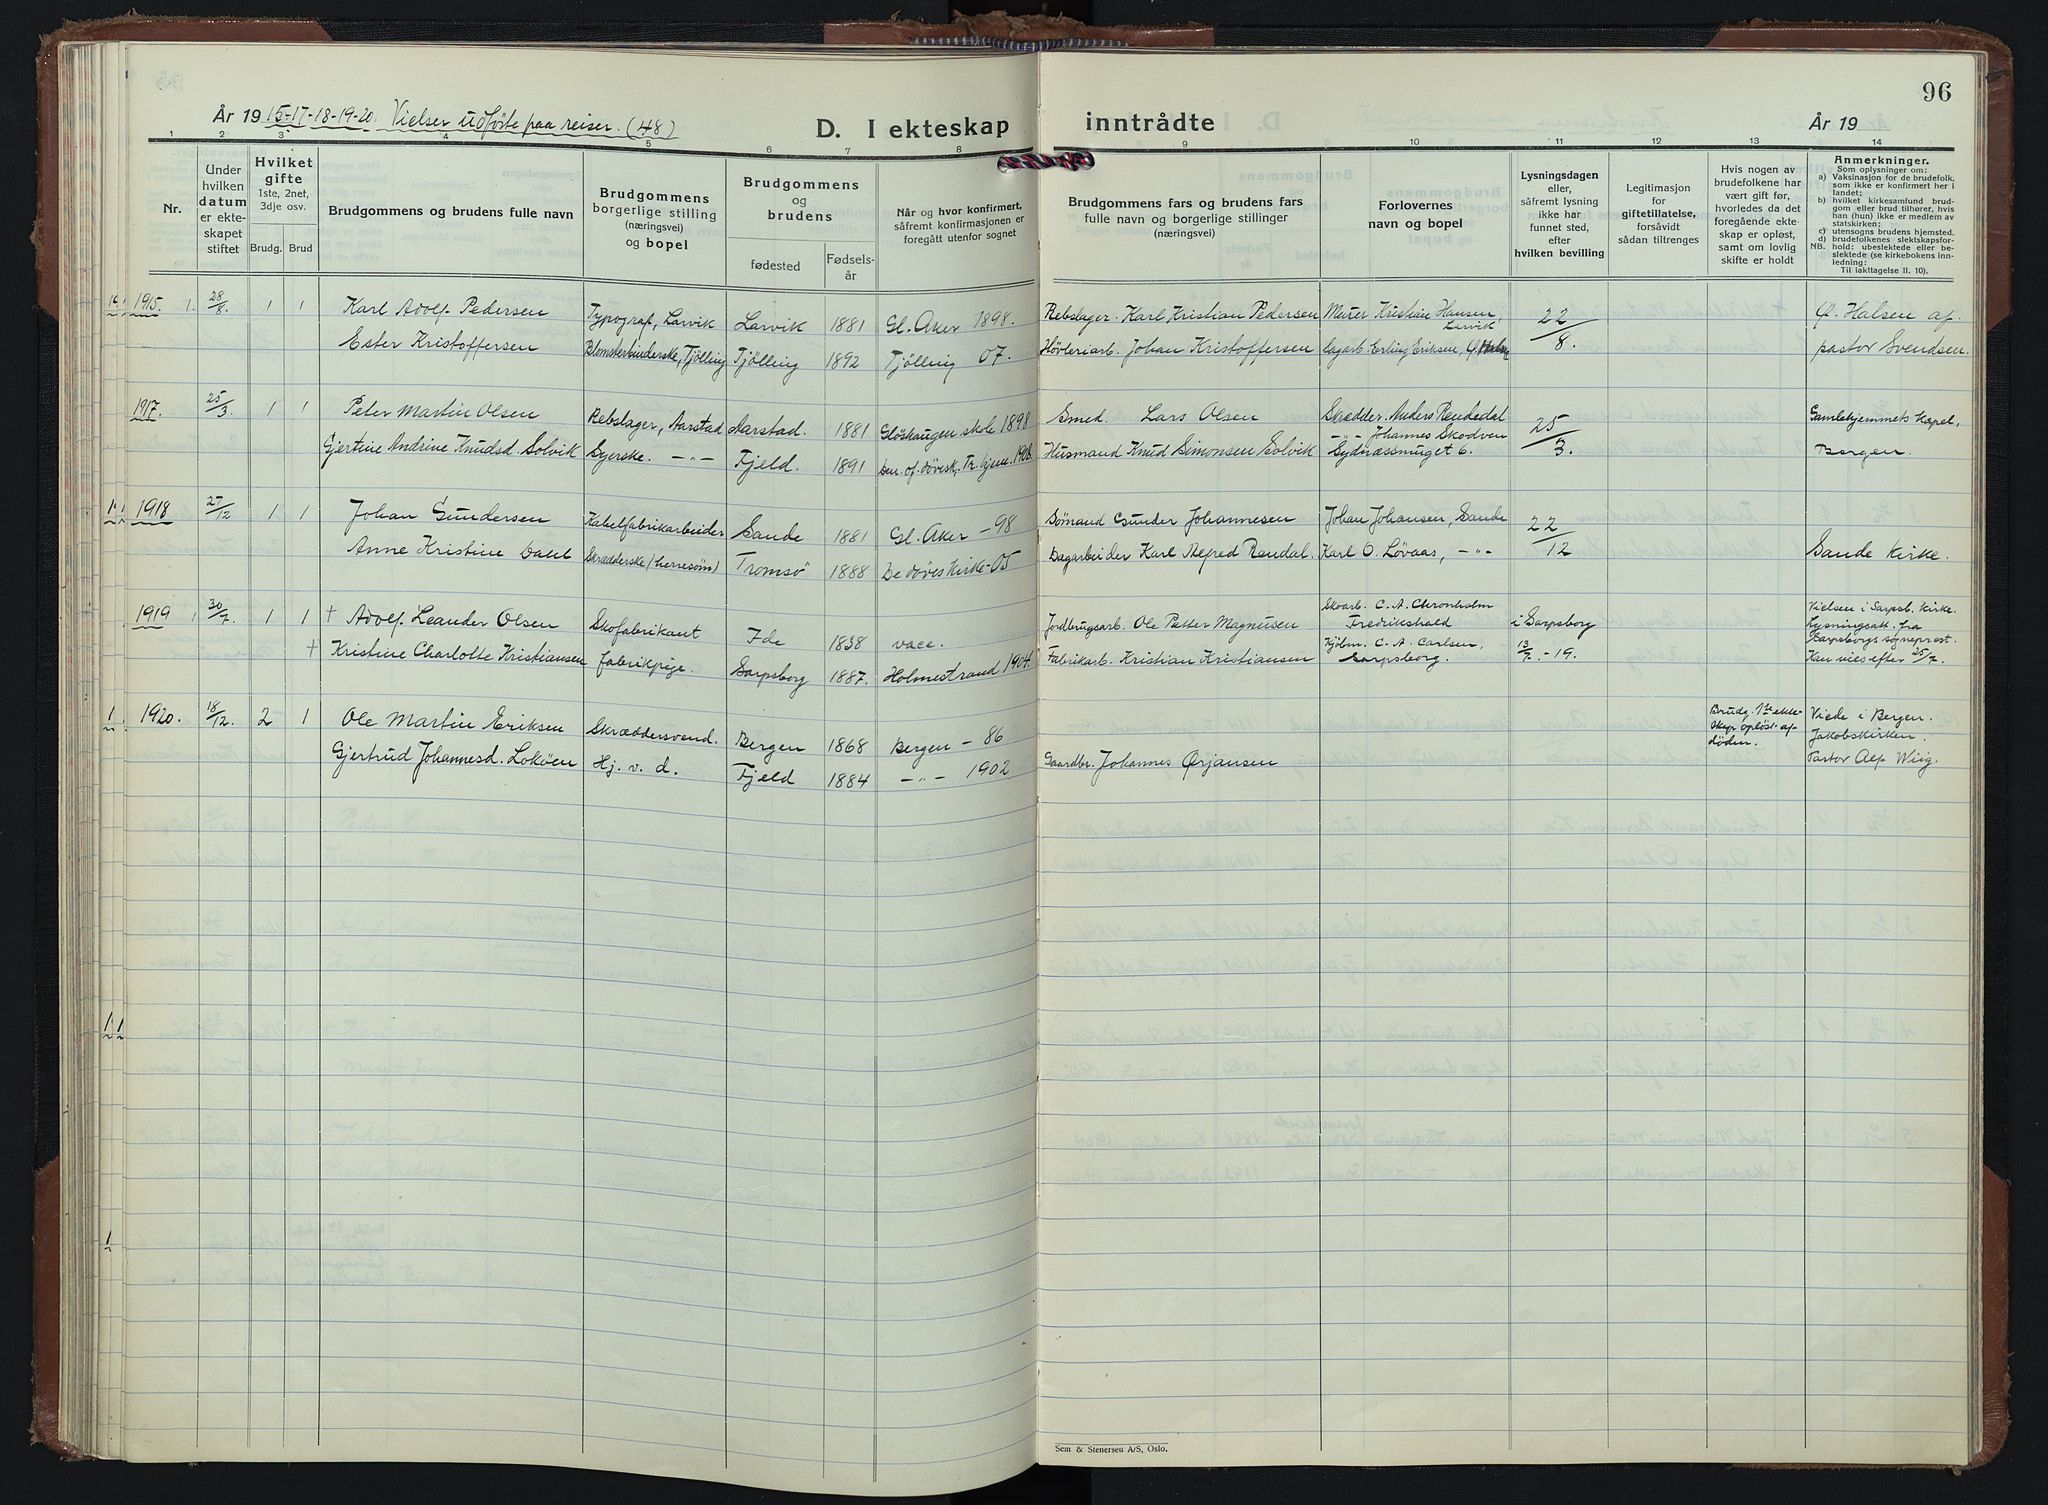 96
År 1915-17-18-19-20. Vielser udförte paa reiser. (48)
D. I ekteskap
inntrådte
År 19
1 2 3 4 5 6 7 8 9 10 11 12 13 14
Nr.
Under hvilken datum er ekteskapet stiftet
Hvilket gifte
1ste, 2net, 3dje osv.
Brudg. Brud
Brudgommens og brudens fulle navn
Brudgommens borgerlige stilling (næringsvei) og bopel
Brudgommens og brudens
fødested
Fødselsår
Når og hvor konfirmert, såfremt konfirmasjonen er foregått utenfor sognet
Brudgommens fars og brudens fars
fulle navn og borgerlige stillinger
(næringsvei)
Forlovernes
navn og bopel
Lysningsdagen
eller,
såfremt lysning
ikke har
funnet sted,
efter
hvilken bevilling
Legitimasjon
for
giftetillatelse,
forsåvidt
sådan tiltrenges
Hvis nogen av
brudefolkene har
vært gift før,
hvorledes da det
foregående ekte-
skap er opløst,
samt om lovlig
skifte er holdt
Anmerkninger.
Som oplysninger om:
a) Vaksinasjon for de brudefolk,
som ikke er konfirmert her i
landet;
b) hvilket kirkesamfund brud-
gom eller brud tilhører, hvis
han (hun) ikke er medlem av
statskirken;
c) utensogns brudens hjemsted.
d) brudefolkenes slektskapsfor-
NB. hold: ubeslektede eller be-
slektede (se kirkebokens inn-
ledning:
Til iakttagelse II. 10).
1915. 1. 28/8. 1 1 Karl Adolf Pedersen Typograf, Larvik Larvik 1881 Gl. Aker 1898. Rebslager. Karl Kristian Pedersen Murer Kristian Hansen, Larvik 22/8. Ø. Halsen af
Ester Kristoffersen Blomsterbinderske, Tjölling Tjölling 1892 Tjölling 07. Hövleriarb. Johan Kristoffersen lagarb. Erling Eriksen, Ø. Halsen pastor Svendsen.
1917. 25/3. 1 1 Peter Martin Olsen Rebslager, Aarstad Aarstad. 1881 Glöshaugen skole 1898 Smed. Lars Olsen Skrædder. Anders Rendedal 25/3. Gamlehjemmets Kapel,
Gjertine Andrine Knudsd. Solvik Syerske. -"- Fjeld. 1891 Den. off. dövesk., Tr. hjem. 1908. Husmand Knud Simonsen Solvik -"- Johannes Skodven Sydnæssmuget 6. Bergen.
1918 27/12 1 1 Johan Gundersen Kabelfabrikarbeider Sande 1881 Gl. Aker - 98 Sømand Gunder Johannesen Johan Johansen, Sande 22/12
Anne Kristine Dahl Skrædderske (herresøm) Tromsö 1888 De döves Kirke - 05 Dagarbeider Karl Alfred Rendal. Karl O. Løvaas, -"- Sande Kirke.
1919 1 30/7. 1 1 + Adolf Leander Olsen Skofabrikant Ide 1838 vacc. Jordbrugsarb. Ole Petter Magnusen Skoarb. C. A. Chronholm Fredrikshald i Sarpsborg Vielsen i Sarpsb. Kirke.
+ Kristine Charlotte Kristiansen fabrikpige. Sarpsborg 1887. Holmestrand 1904. Fabrikarb. Kristian Kristiansen Kjölm. C. A. Carlsen, Sarpsborg. 13/7. - 19. Lysningsatt. fra
Sarpsborgs sogneprest.
Kan vies efter 25/7.
1920. 18/12. 2 1 Ole Martin Eriksen Skræddersvend. Bergen 1868 Bergen - 86 Brudg. 1ste ekte- Viede i Bergen.
skap opløst af- Jakobskirken.
døden.
Gjertrud Johannesd. Loköen Hj. v. d. Fjeld 1884 -"- 1902 Gaardbr. Johannes Ørjansen Pastor Alf Wiig.
Sem & Stenersen A/S, Oslo.